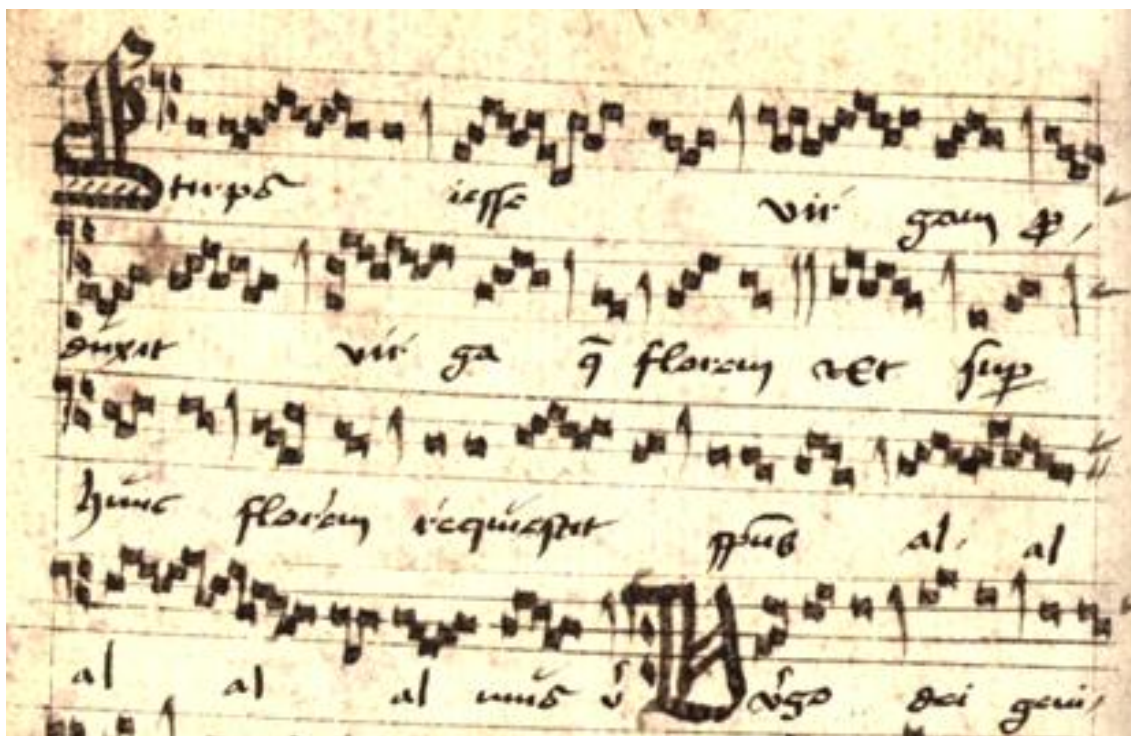 Stirps iesse vir gam ꝓ,
duxit vir ga q̄ florem et suꝑ
hunc florem requiescit spūs al, al
al al al mus v̉ Virgo dei geni,